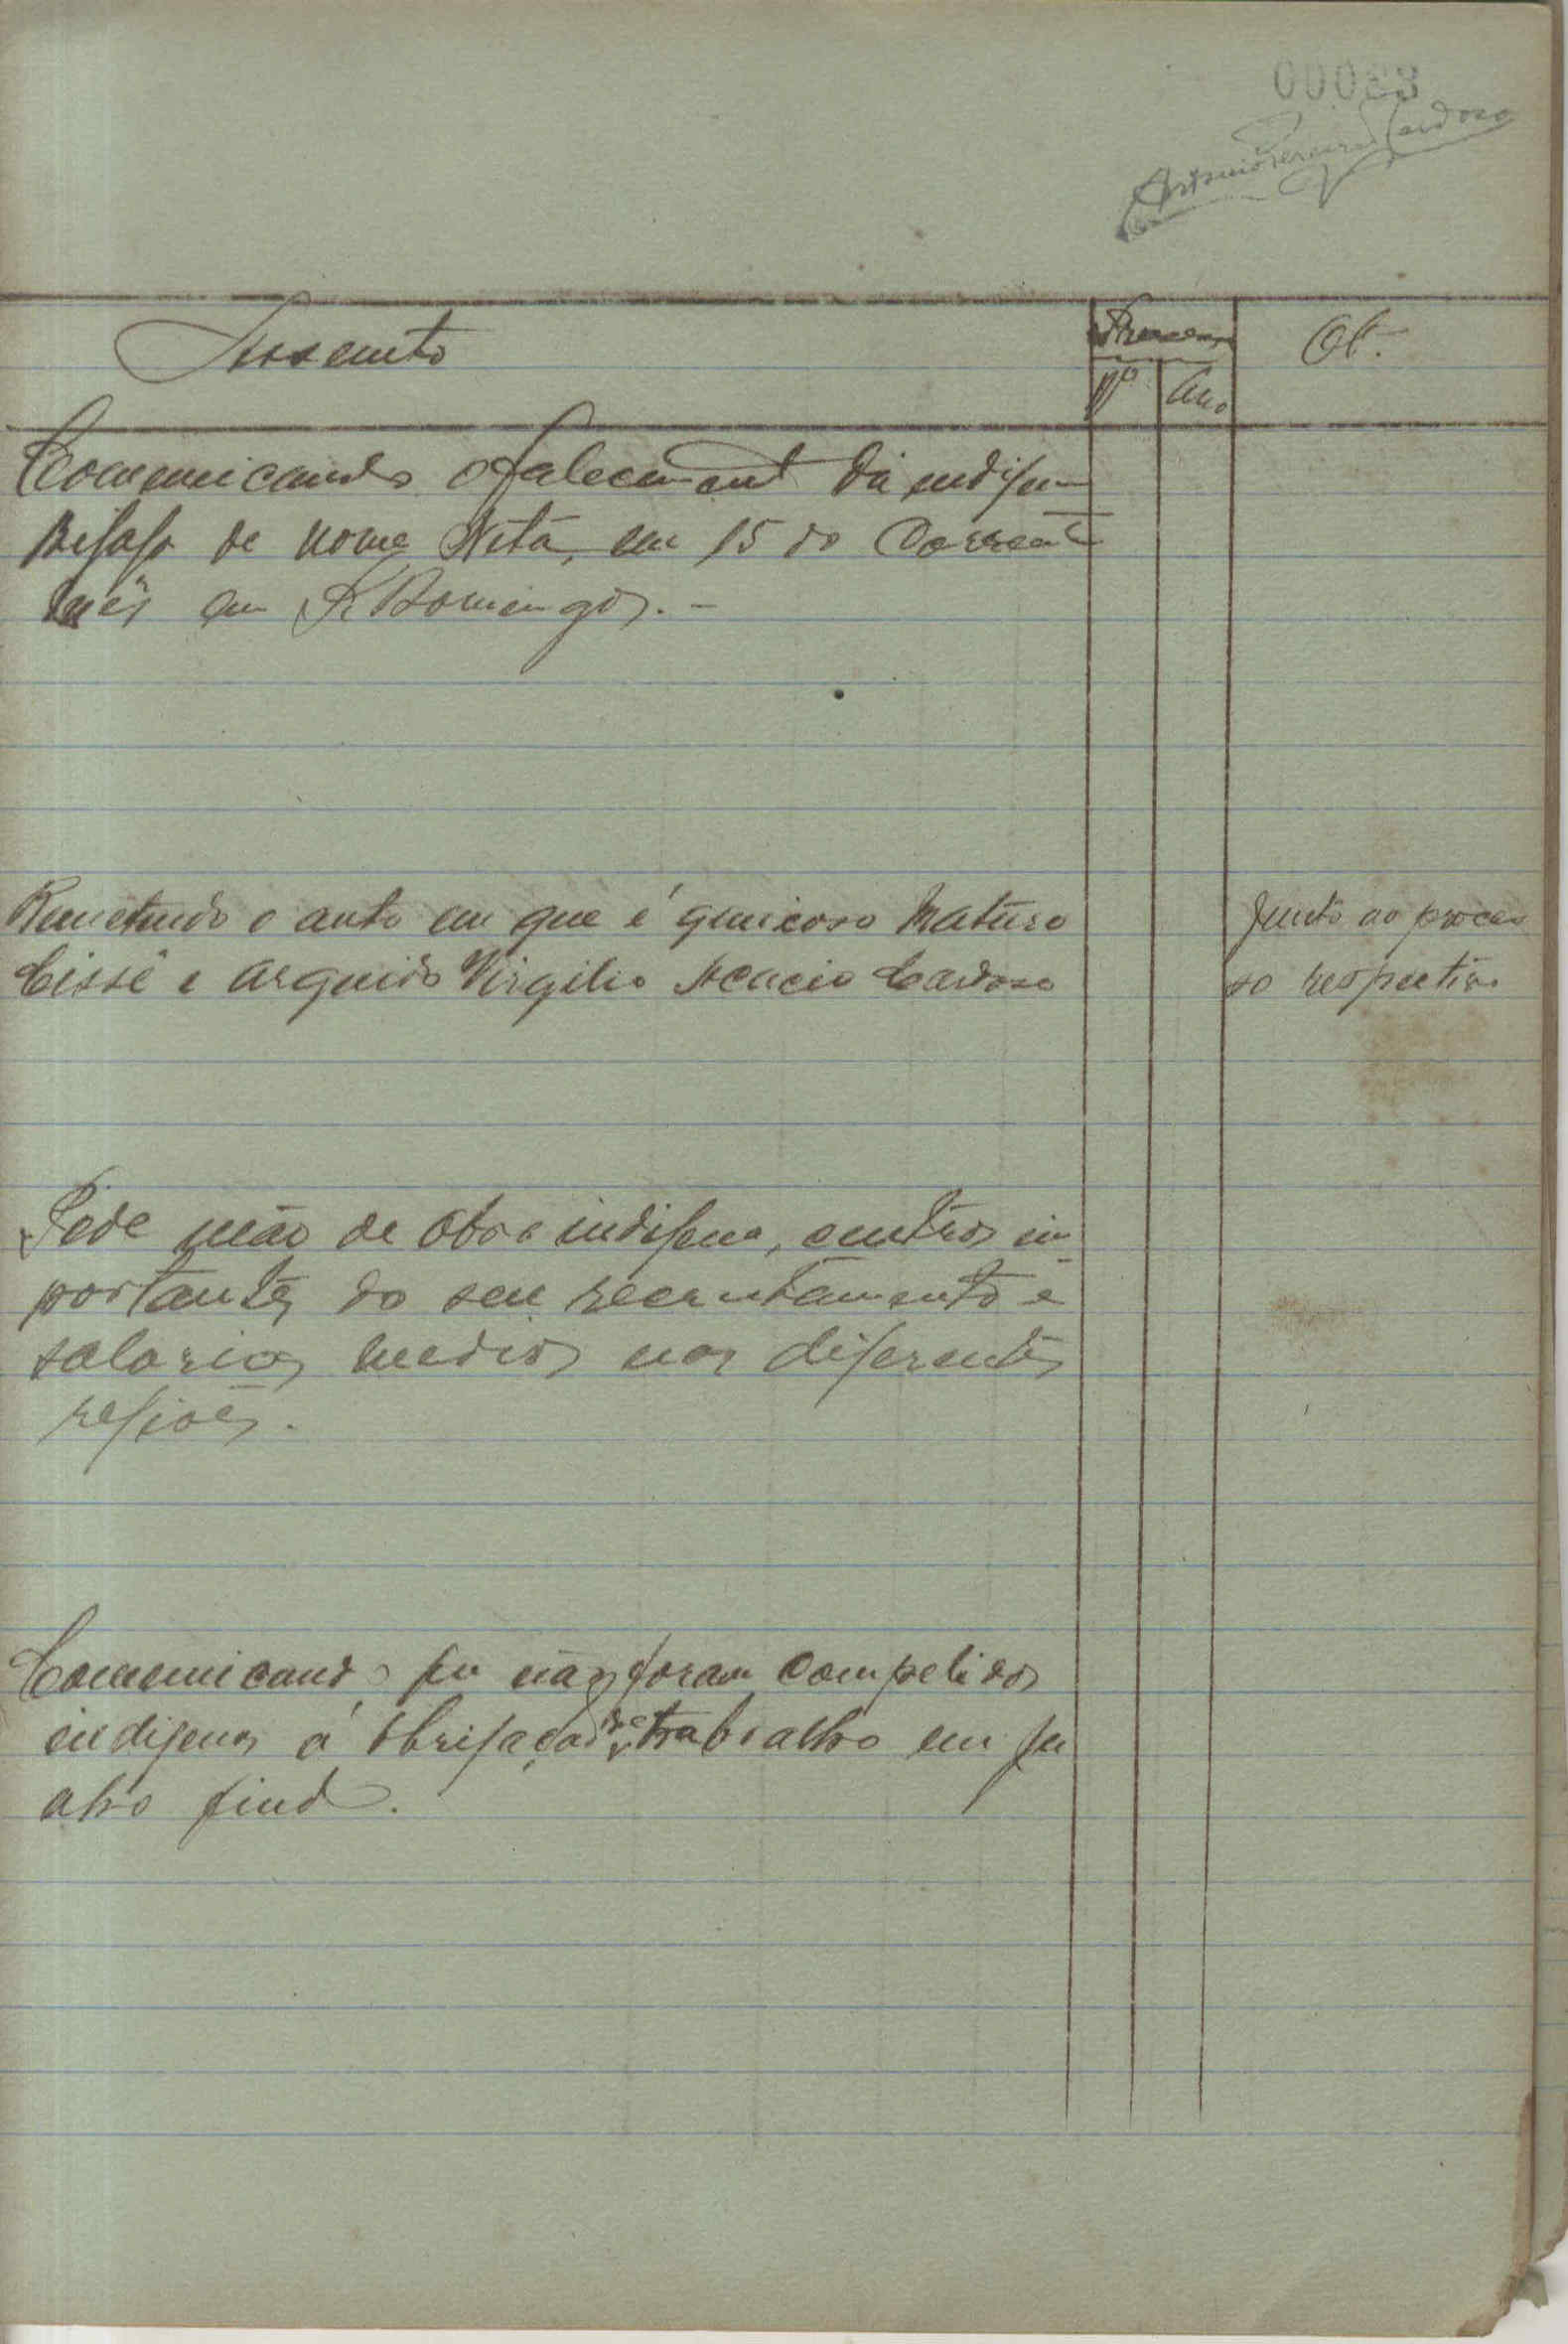 Antonio Pereira Cardoso
Assunto
Processo
Ob.
Nº Ano
Communicando o falecimento da indigena
Bijagó de nome Nitá, em 15 do corrente
mês em S. Domingos. -
Remetendo o auto em que é queixoso Maturo
Cissé e arguido Virgilio Acacio Cardoso
Junto ao proces
so respectivo
Pede mão de obra indigena, centros im
portantes do seu recrutamento e
salarios medios nas diferentes
regiões.
Communicando que não foram compelidos
indigenas á obrigação de trabralho em ju
alho findo.